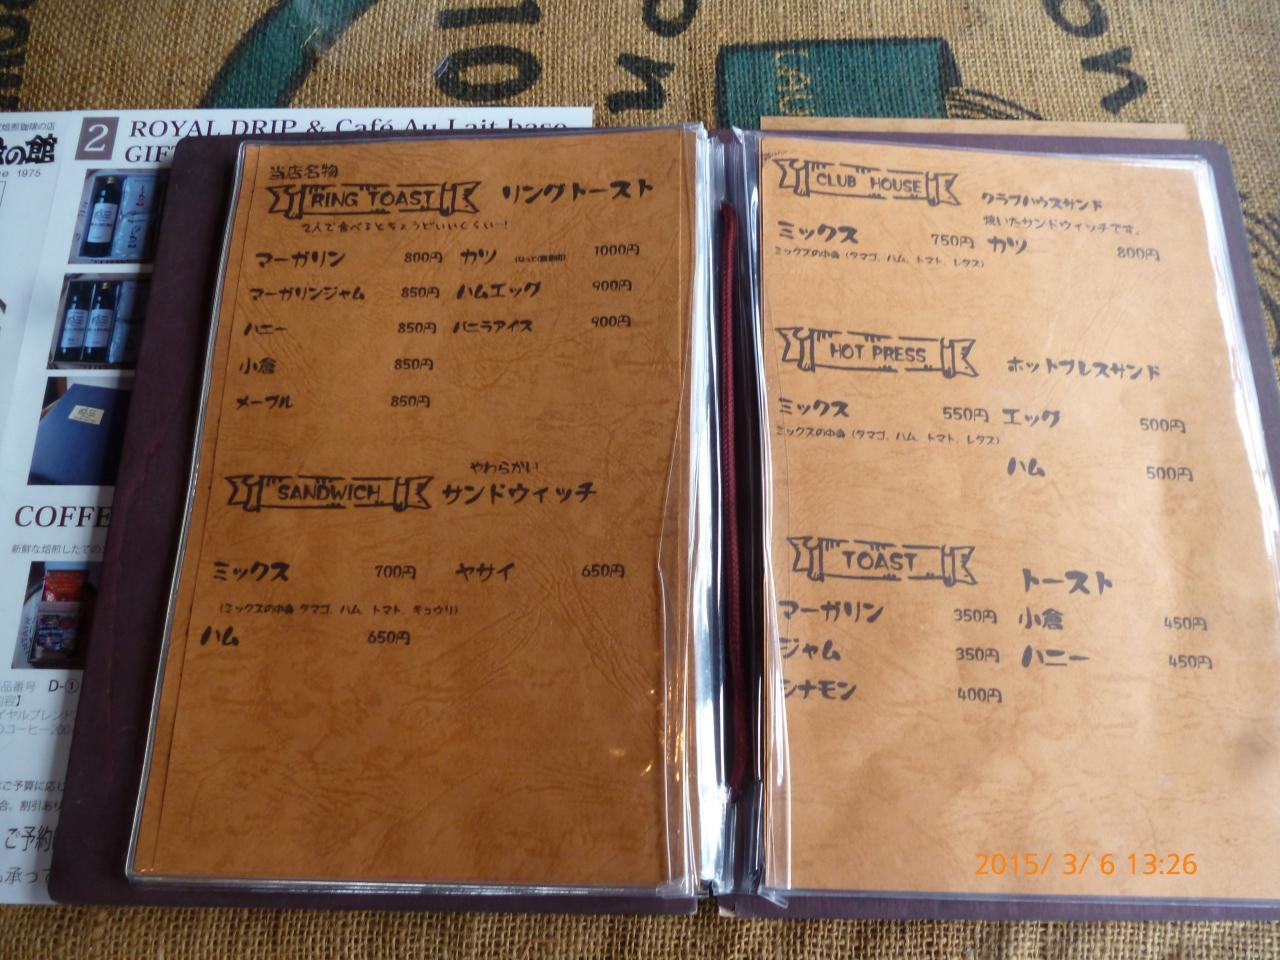 2 ROYAL DRIP & Café Au Lait base
の館
1975
COFFE
品番号 D-①
ご予算に応じ
合、割引あり
ご予約
承って
当店名物
RING TOAST リングトースト
2人で食べるとちょうどいいくらい!
マーガリン 800円 カツ 1000円
マーガリンジャム 850円 ハムエッグ 900円
ハニー 850円 バニラアイス 900円
小倉 850円
メープル 850円
やわらかい
SANDWICH サンドウィッチ
ミックス 700円 ヤサイ 650円
(ミックスの中身 タマゴ、ハム、トマト、キュウリ)
ハム 650円
CLUB HOUSE クラブハウスサンド
焼いたサンドウィッチです。
ミックス 750円 カツ 800円
ミックスの中身 (タマゴ、ハム、トマト、レタス)
HOT PRESS ホットプレスサンド
ミックス 550円 エッグ 500円
ミックスの中身 (タマゴ、ハム、トマト、レタス)
ハム 500円
TOAST トースト
マーガリン 350円 小倉 450円
ジャム 350円 ハニー 450円
シナモン 400円
2015/ 3/ 6 13:26